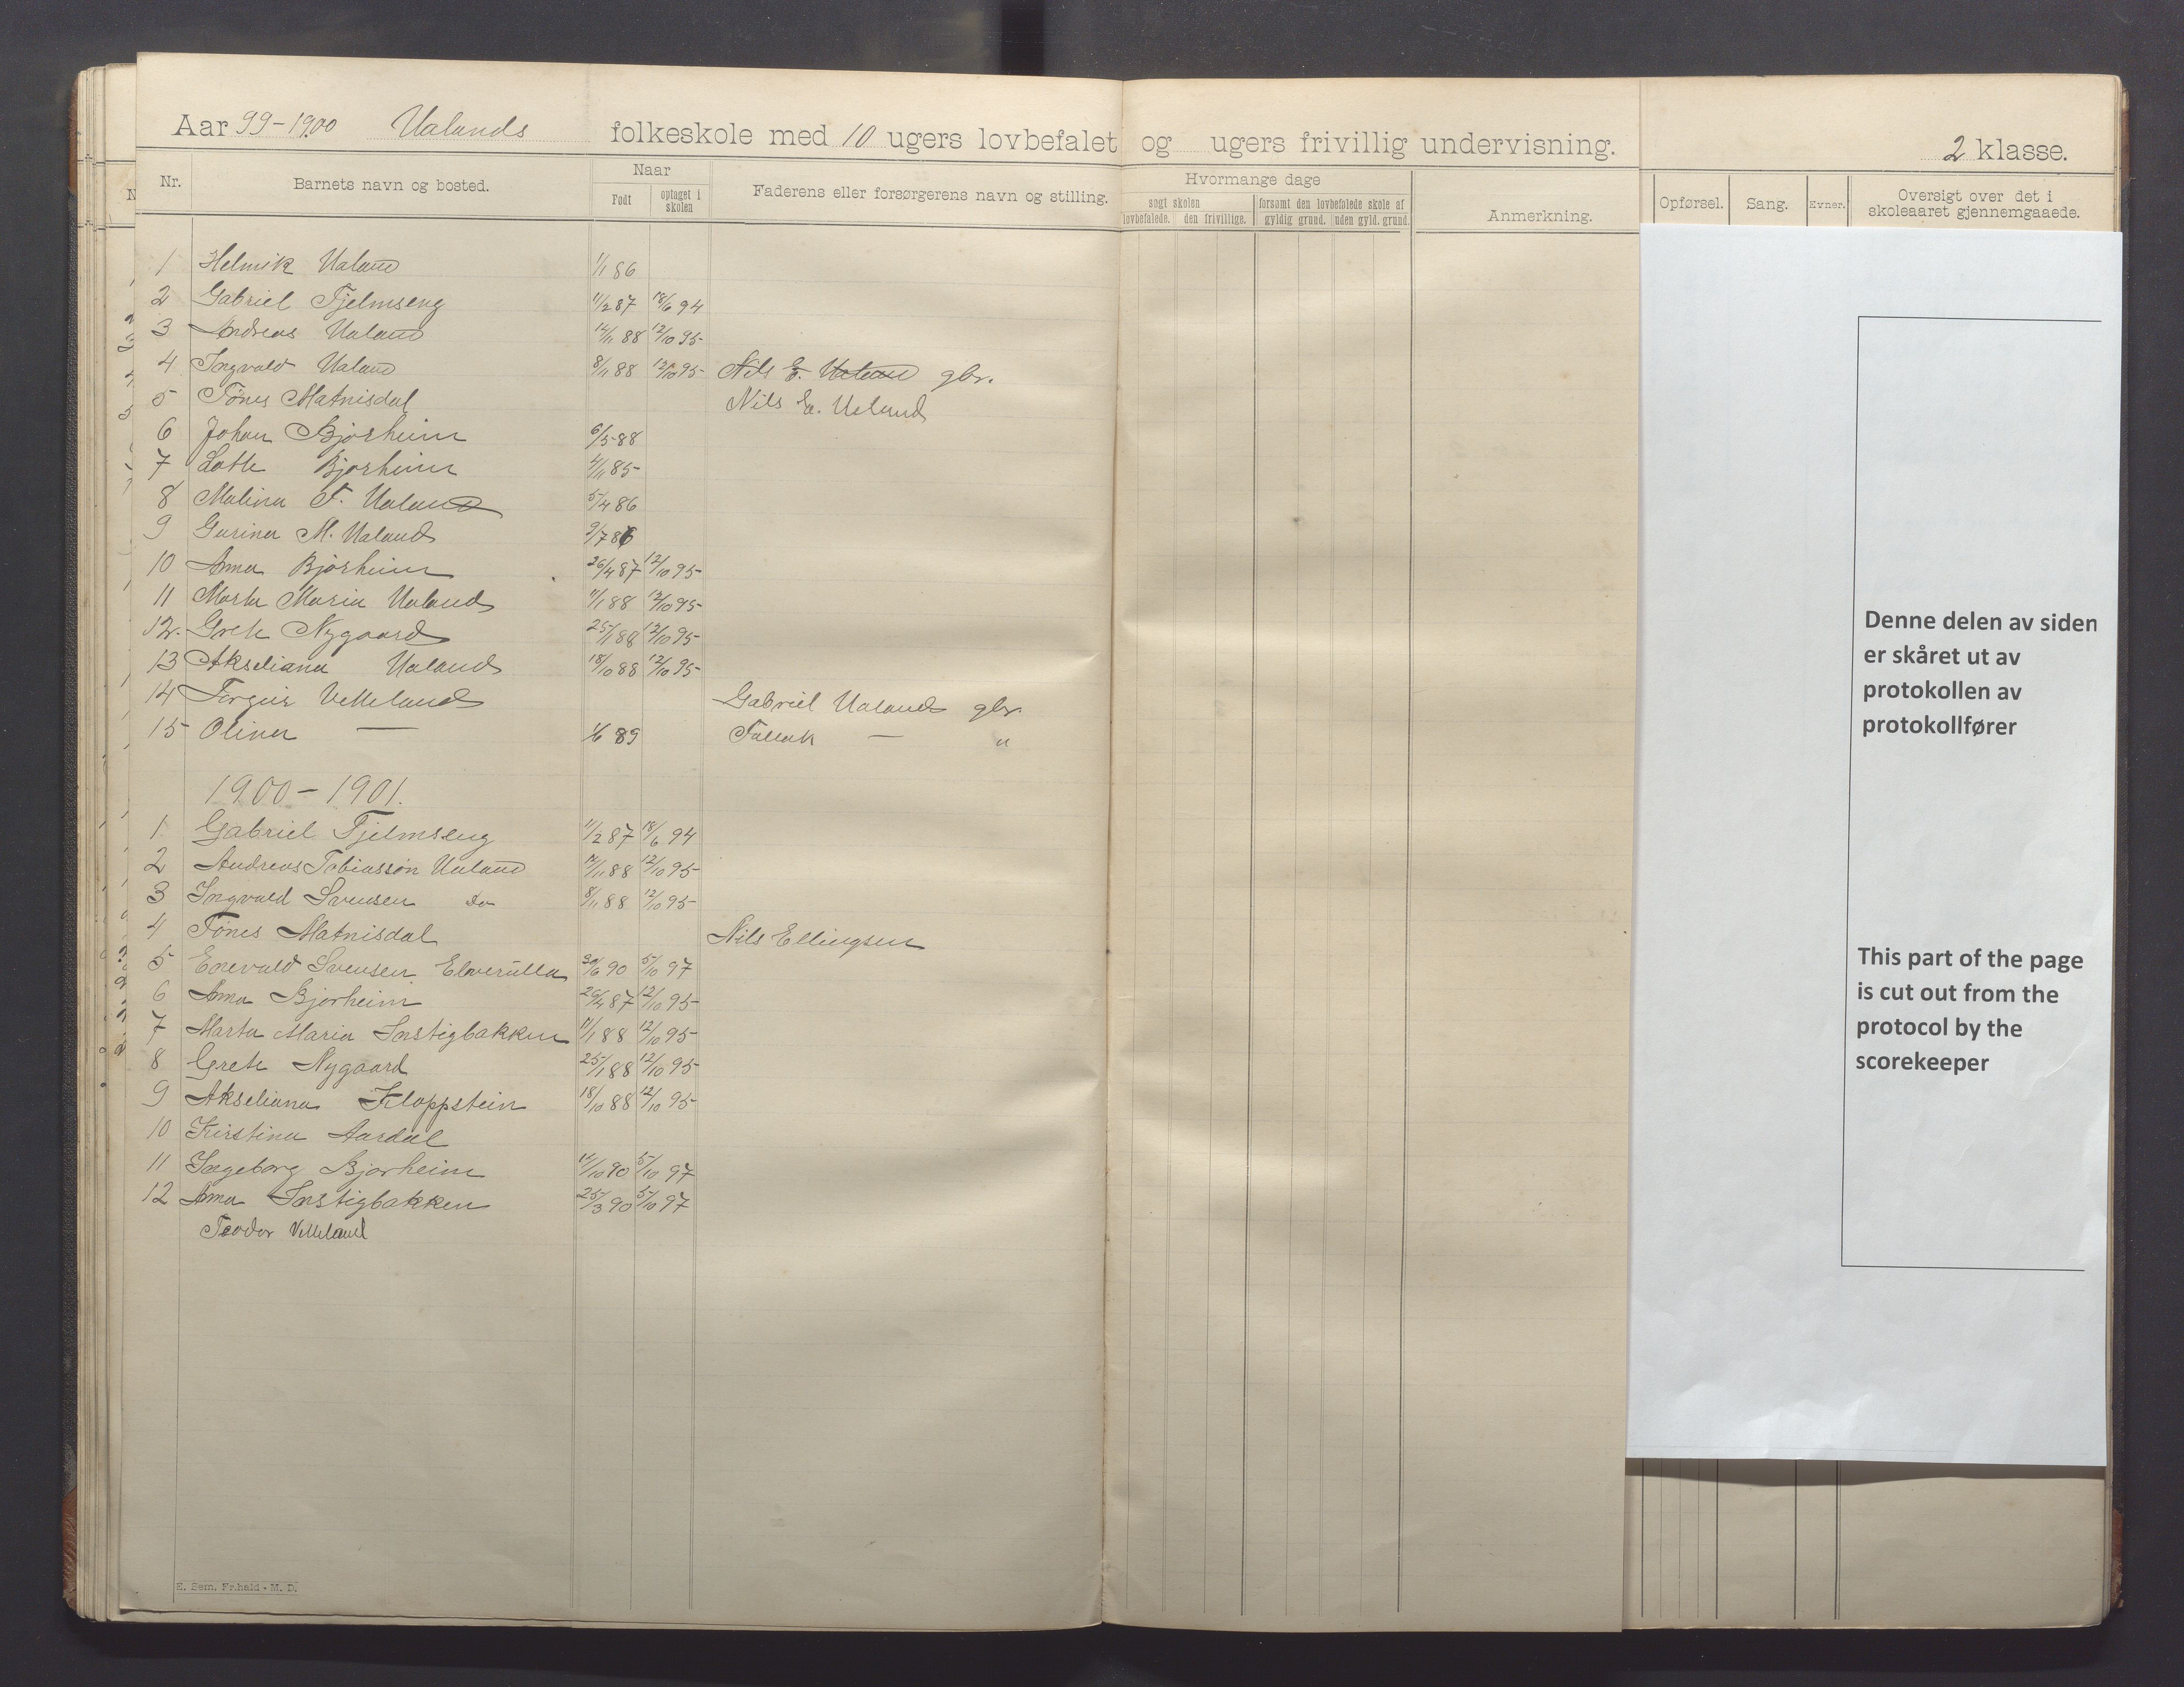 Aar 99-1900 Ualands folkeskole med 10 ugers lovbefalet og ugers frivillig undervisning.
2 klasse.
Nr.
Barnets navn og bosted.
Naar
Født
optaget i skolen
Faderens eller forsørgerens navn og stilling.
Hvormange dage
søgt skolen
lovbefalede.
den frivillige.
forsømt den lovbefalede skole af
gyldig grund.
uden gyld. grund.
Anmerkning.
Opførsel.
Sang.
Evner.
Oversigt over det i
skoleaaret gjennemgaaede.
1 Helmik Ualand 1/1 86
2 Gabriel Tjelmseng 11/2 87 18/6 94
3 Andreas Ualand 14/11 88 12/10 95
4 Ingvald Ualand 8/11 88 12/10 95 Nils E. Ualand gbr.
5 Tønes Matnisdal Nils Ea. Ueland
6 Johan Bjørheim 6/5 88
7 Lotte Bjørheim 4/11 85
8 Malina T. Ualand 5/4 86
9 Gurina M. Ualand 9/7 86
10 Anna Bjørheim 26/4 87 12/10 95
11 Marta Maria Ualand 11/1 88 12/10 95
12. Grete Nygaard 25/1 88 12/10 95
13 Akseliana Ualand 18/10 88 12/10 95
14 Torgeir Vetteland Gabriel Ualand gbr.
15 Olina — 1/6 89 Tallak — "
1900-1901.
1 Gabriel Tjelmseng 11/2 87 18/6 94
2 Andreas Tobiasson Ualand 14/11 88 12/10 95
3 Ingvald Svensen do 8/11 88 12/10 95
4 Tønes Matnisdal Nils Ellingsen
5 Enevald Svensen 30/6 90 5/10 97
6 Anna Bjørheim 26/4 87 12/10 95
7 Marta Maria Instigbakken 11/1 88 12/10 95
8 Grete Nygaard 25/1 88 12/10 95
9 Akseliana Kloppstein 18/10 88 12/10 95
10 Kirstina Aardal
11 Ingeborg Bjørheim 14/10 90 5/10 97
12 Anna Instigbakken 25/3 90 5/10 97
Teodor Vetteland
E. Sem. Fr.hald - M. D.
Denne delen av siden
er skåret ut av
protokollen av
protokollfører
This part of the page
is cut out from the
protocol by the
scorekeeper